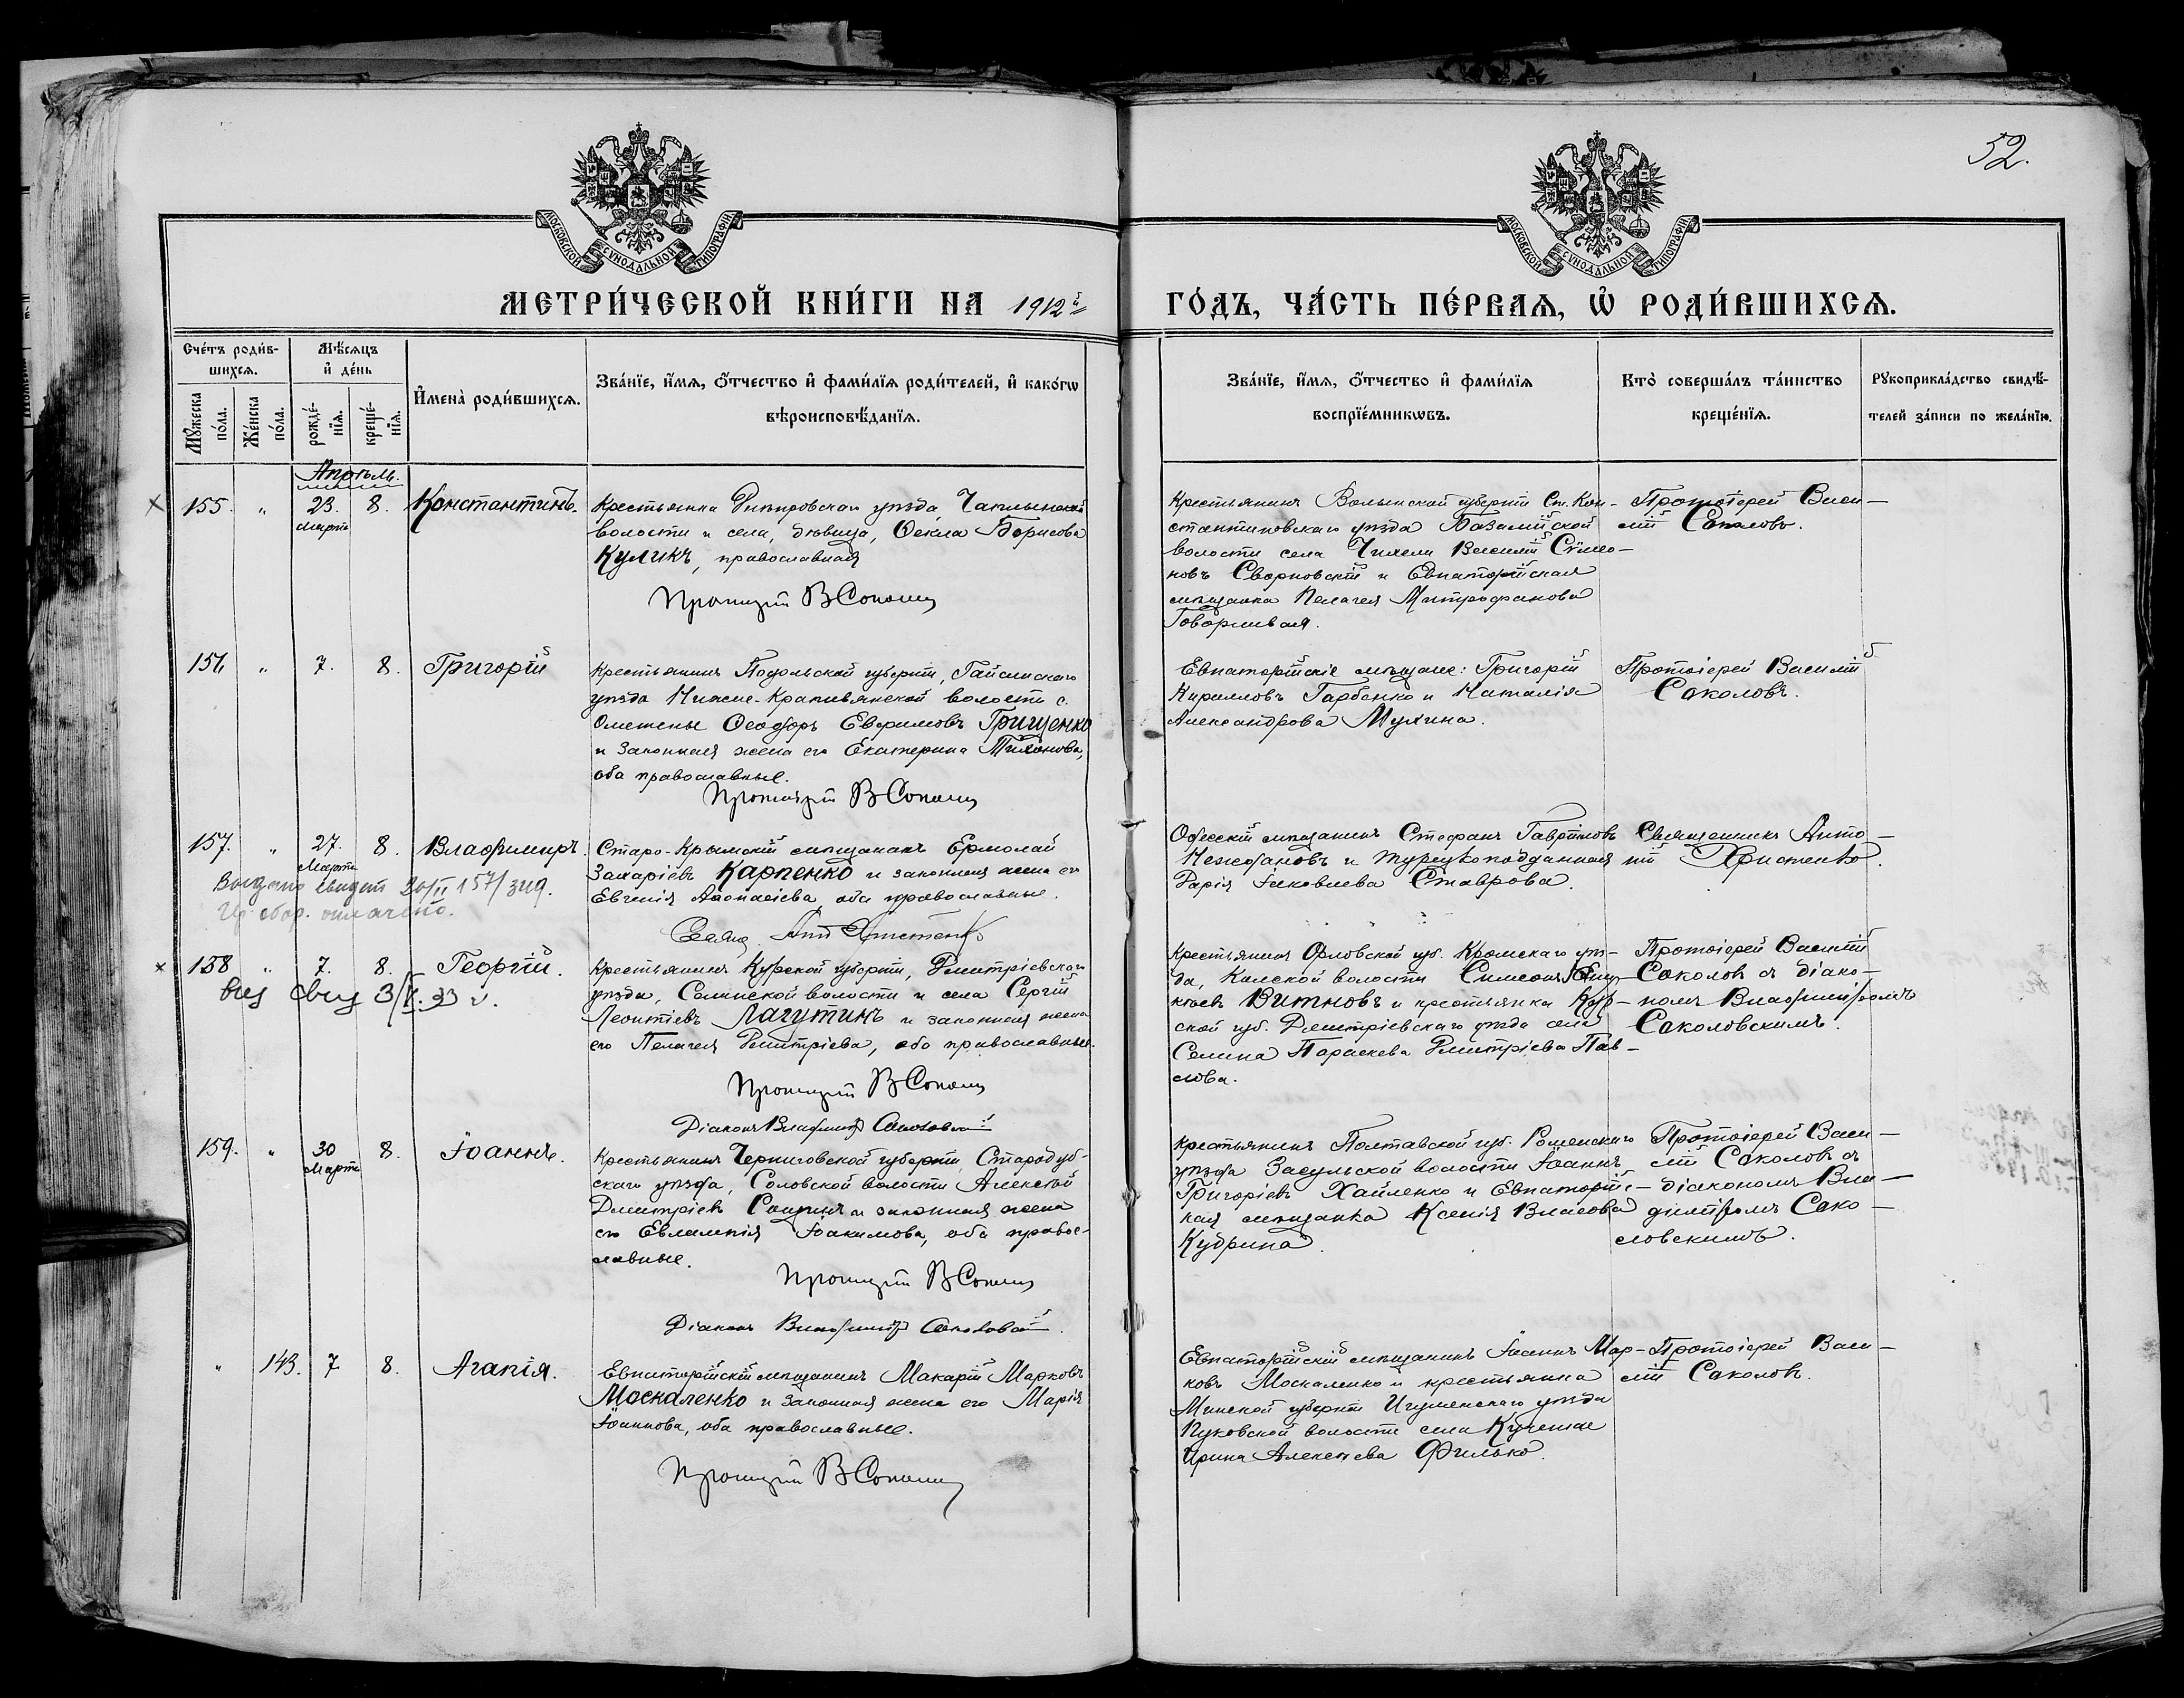 52.
МОСКОВСКОЙ СѴНОДАЛЬНОЙ ТИПОГРАФІИ
МОСКОВСКОЙ СѴНОДАЛЬНОЙ ТИПОГРАФІИ
МЕТРИ́ЧЕСКОЙ КНИ́ГИ НА 1912й ГО́ДЪ, ЧА́СТЬ ПЕ́РВАЯ, Ѡ҆ РОДИ́ВШИХСЯ.
Сче́тъ роди́в-
шихся.
Мѣ́сяцъ
и҆ де́нь
Мꙋ́жеска
по́ла.
Же́нска
по́ла.
рожде́-
нїя.
креще́-
нїя.
И҆мена̀ роди́вшихся.
Зва́нїе, и҆́мя, ѻ҆́тчество и҆ фами́лїя роди́телей, и҆ како́гѡ
вѣроисповѣ́данїя.
Зва́нїе, и҆́мя, ѻ҆́тчество и҆ фами́лїя
воспрїе́мникѡвъ.
Кто̀ соверша́лъ та́инство
креще́нїя.
Рꙋкоприкла́дство свидѣ́-
телей за́писи по жела́нїю.
Апрѣль.
155. " 23. Марта 8. Константинъ.
Крестьянка Днѣпровскаго уѣзда, Чаплынской
волости и села, дѣвица, Ѳекла Борисова
Куликъ, православная
Протоіерей В Соколовъ
Крестьянинъ Волынской губерніи Ст. Кон-
стантиновскаго уѣзда Базалійской
волости села Чихели Василій Сѵмео-
новъ Сворновскій и Евпаторійская
мѣщанка Пелагея Митрофанова
Говорливая.
Протоіерей Васи-
лій Соколовъ.
156 " 7. 8. Григорій
Крестьянинъ Подольской губерніи, Гайсинскаго
уѣзда Нижне-Крапивянской волости с.
Ометены Ѳеодоръ Евфимовъ Грищенко
и законная жена его Екатерина Тихонова,
оба православные.
Протоіерей В Соколовъ
Евпаторійскіе мѣщане: Григорій
Кирилловъ Гарбенко и Наталія
Александрова Мухина.
Протоіерей Василій
Соколовъ.
157. " 27. Марта 8. Владимиръ.
Выдано свидет 20/II 157/ 319.
Гр. сбор. оплачено.
Старо-Крымскій мѣщанинъ Ермолай
Захаріевъ Карпенко и законная жена его
Евгенія Аѳонасіева, оба православные.
Свящ. Ант Христенко
Одесскій мѣщанинъ Стефанъ Гавріиловъ
Нежодановъ и турецкоподданная
Дарія Іаковлева Ставрова.
Священникъ Анто-
ній Христенко.
158 " 7. 8. Георгій.
Крестьянинъ Курской губерніи, Дмитріевскаго
уѣзда, Селинской волости и села Сергій
Леонтіевъ Лагутинъ и законная жена
его Пелагея Дмитріева, оба православные.
Протоіерей В Соколовъ
Діаконъ Владиміръ Соколовскій
Крестьянинъ Орловской губ. Кромскаго уѣз-
да, волости Симеонъ
Витновъ и крестьянка Кур-
ской губ. Дмитріевскаго уѣзда села
Селина Параскева Дмитріева Пав-
лова.
Протоіерей Василій
Соколовъ съ діако-
номъ Владиміромъ
Соколовскимъ.
159. " 30 Марта 8. Іоаннъ.
Крестьянинъ Черниговской губерніи, Стародуб-
скаго уѣзда, Соловской волости Алексѣй
Дмитріевъ и законная жена
его Евлампія Іоакимова, оба право-
славные.
Протоіерей В Соколовъ
Діаконъ Владиміръ Соколовскій.
Крестьянинъ Полтавской губ. Роменскаго
уѣзда Засульской волости Іоаннъ
Григоріевъ Хайленко и Евпаторійс-
кая мѣщанка Ксенія Власова
Кубрина.
Протоіерей Васи-
лій Соколовъ съ
діакономъ Вла-
диміромъ Соко-
ловскимъ.
" 143. 7 8. Агапія.
Евпаторійскій мѣщанинъ Макарій Марковъ
Москаленко и законная жена его Марія
Іоаннова, оба православные.
Протоіерей В Соколовъ
Евпаторійскій мѣщанинъ Іоаннъ Мар-
ковъ Москаленко и крестьянка
Минской губерніи Игуменскаго уѣзда
Пуховской волости села
Ирина Алексѣева Филько.
Протоіерей Васи-
лій Соколовъ.